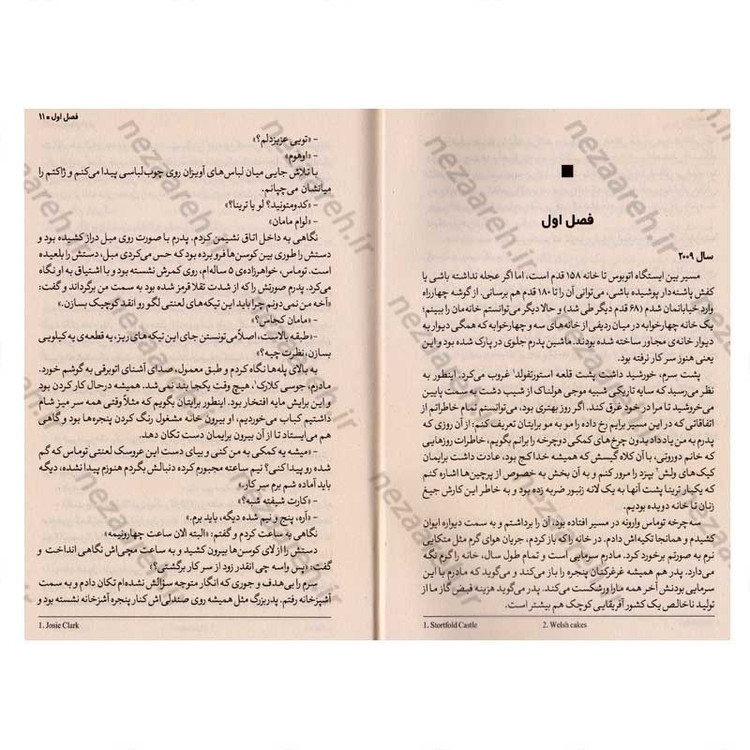 فصل اول
سال ۲۰۰۹
مسیر بین ایستگاه اتوبوس تا خانه ۱۵۸ قدم است، اما اگر عجله نداشته باشی یا
کفش پاشنه‌دار پوشیده باشی، می‌توانی آن را تا ۱۸۰ قدم هم برسانی. از گوشه چهارراه
وارد خیابانمان شدم (۶۸ قدم دیگر طی شد) و حالا دیگر می‌توانستم خانه‌مان را ببینم؛
یک خانه چهارخوابه در میان ردیفی از خانه‌های سه و چهارخوابه که همگی دیوار به
دیوار خانه‌ی مجاور ساخته شده بودند. ماشین پدرم جلوی در پارک شده بود و این
یعنی هنوز سر کار نرفته بود.
پشت سرم، خورشید داشت پشت قلعه استورتفولد¹ غروب می‌کرد. اینطور به
نظر می‌رسید که سایه تاریکی شبیه موجی هولناک از شیب دشت به سمت پایین
می‌خروشید تا مرا در خود غرق کند. اگر روز بهتری بود، می‌توانستم تمام خاطراتم از
اتفاقاتی که در این مسیر برایم رخ داده را مو به مو برایتان تعریف کنم: از آن روزی که
پدرم به من یاد داد بدون چرخ‌های کمکی دوچرخه را برانم بگویم، خاطرات روزهایی
که خانم دورونی، با آن کلاه گیسش که همیشه خدا کج بود، عادت داشت برایمان
کیک‌های ولش² بپزد را مرور کنم و به آن بخش به خصوص از پرچین‌ها اشاره کنم
که یکبار ترینا پشت آنها به یک لانه زنبور ضربه زده بود و به خاطر این کارش جیغ
زنان تا خانه دویده بودیم.
سه‌چرخه توماس وارونه در مسیر افتاده بود، آن را برداشتم و به سمت دیواره ایوان
کشیدم و همانجا تکیه‌اش دادم. در خانه را که باز کردم، جریان هوای گرم مثل متکایی
نرم به صورتم برخورد کرد. مادرم سرمایی است و تمام طول سال، خانه را گرم نگه
می‌دارد. پدر هم همیشه غرغرکنان پنجره را باز می‌کند و می‌گوید که مادرم با این
سرمایی بودنش آخر همه ما را ورشکست می‌کند. پدر می‌گوید هزینه قبض گاز ما از
تولید ناخالص یک کشور آفریقایی کوچک هم بیشتر است.
1. Stortfold Castle
2. Welsh cakes
فصل اول ■ ۱۱
- «تویی عزیزدلم؟»
- «اوهوم»
با تلاش جایی میان لباس‌های آویزان روی چوب‌لباسی پیدا می‌کنم و ژاکتم را
میانشان می‌چپانم.
- «کدومتونید؟ لو یا ترینا؟»
- «لوام مامان»
نگاهی به داخل اتاق نشیمن کردم. پدرم با صورت روی مبل دراز کشیده بود و
دستش را طوری بین کوسن‌ها فرو برده بود که حس می‌کردی مبل، دستش را بلعیده
است. توماس، خواهرزاده‌ی ۵ ساله‌ام، روی کمرش نشسته بود و با اشتیاق به او نگاه
می‌کرد. پدرم صورتش را که از شدت تقلا قرمز شده بود به سمت من برگرداند و گفت:
«آخه من نمی‌دونم چرا باید این تیکه‌های لعنتی لگو رو انقد کوچیک بسازن.»
- «مامان کجاس؟»
- «طبقه بالاست، اصلاً می‌تونستن جای این تیکه‌های ریز، یه قطعه‌ی یه کیلویی
بسازن، نظرت چیه؟»
به بالای پله‌ها نگاه کردم و طبق معمول، صدای آشنای اتوبرقی به گوشم خورد.
مادرم، جوسی کلارک¹، هیچ وقت یکجا بند نمی‌شد. همیشه درحال کار کردن بود
و این برایش مایه افتخار بود. اینطور برایتان بگویم که مثلاً وقتی همه سر میز شام
داشتیم کباب می‌خوردیم، او بیرون خانه مشغول رنگ کردن پنجره‌ها بود و گاهی
هم می‌ایستاد تا از آن بیرون برایمان دست تکان دهد.
- «میشه یه کمکی به من کنی و بیای دست این عروسک لعنتی توماس که گم
شده رو پیدا کنی؟ نیم ساعته مجبورم کرده دنبالش بگردم هنوزم پیدا نشده، دیگه
باید آماده شم برم سر کار.»
- «کارت شیفته شبه؟»
- «آره، پنج و نیم شده دیگه، باید برم.»
نگاهی به ساعت کردم و گفتم: «البته الان ساعت چهارونیمه»
دستش را از لای کوسن‌ها بیرون کشید و به ساعت مچی‌اش نگاهی انداخت و
گفت: «پس واسه چی انقدر زود از سر کار برگشتی؟»
سرم را بی‌هدف و جوری که انگار متوجه سؤالش نشده‌ام تکان دادم و به سمت
آشپزخانه رفتم. پدربزرگ مثل همیشه روی صندلی‌اش کنار پنجره آشپزخانه نشسته بود و
1. Josie Clark
nezaareh.ir